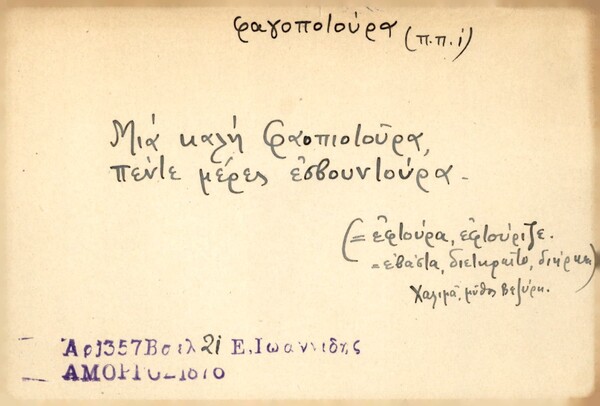 φαγοποιούρα (π.π.ί)
Μιά καλή φαοπιοιοῦρα,
πέντε μέρες ἐσβουντούρα.
(= ἐφτούρα, ἐφτούριζε.
= ἐβάστα, διετηρεῖτο, διήρκει)
Χαλιμᾶ, μῦθος Βεζύρη.
Ἀρ1357Βσιλ 21 Ε. Ἰωαννιδης
ΑΜΟΡΓΟΣ 1876